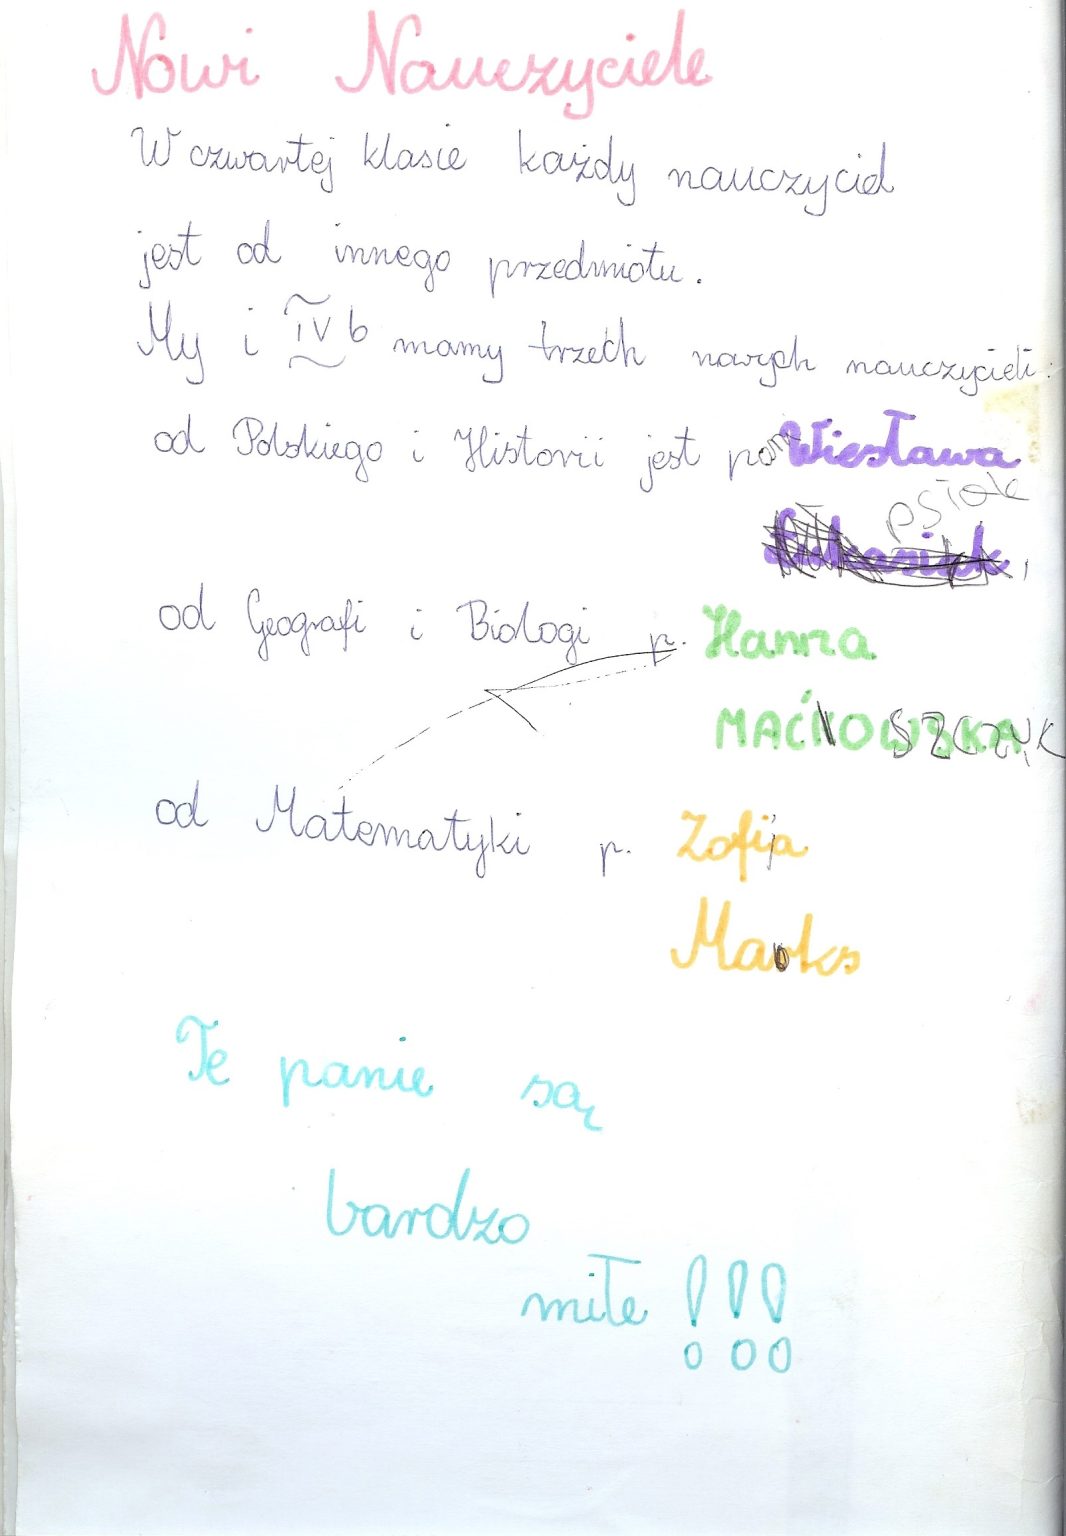 Nowi Nauczyciele
W czwartej klasie każdy nauczyciel
jest od innego przedmiotu.
My i IV b mamy trzech nowych nauczycieli:
od Polskiego i Historii jest pani Wiesława
psiak
od Geografi i Biologi p. Hanna
MAĆKOWSKA
od Matematyki p. Zofija
Marks
Te panie są
bardzo
miłe !!!